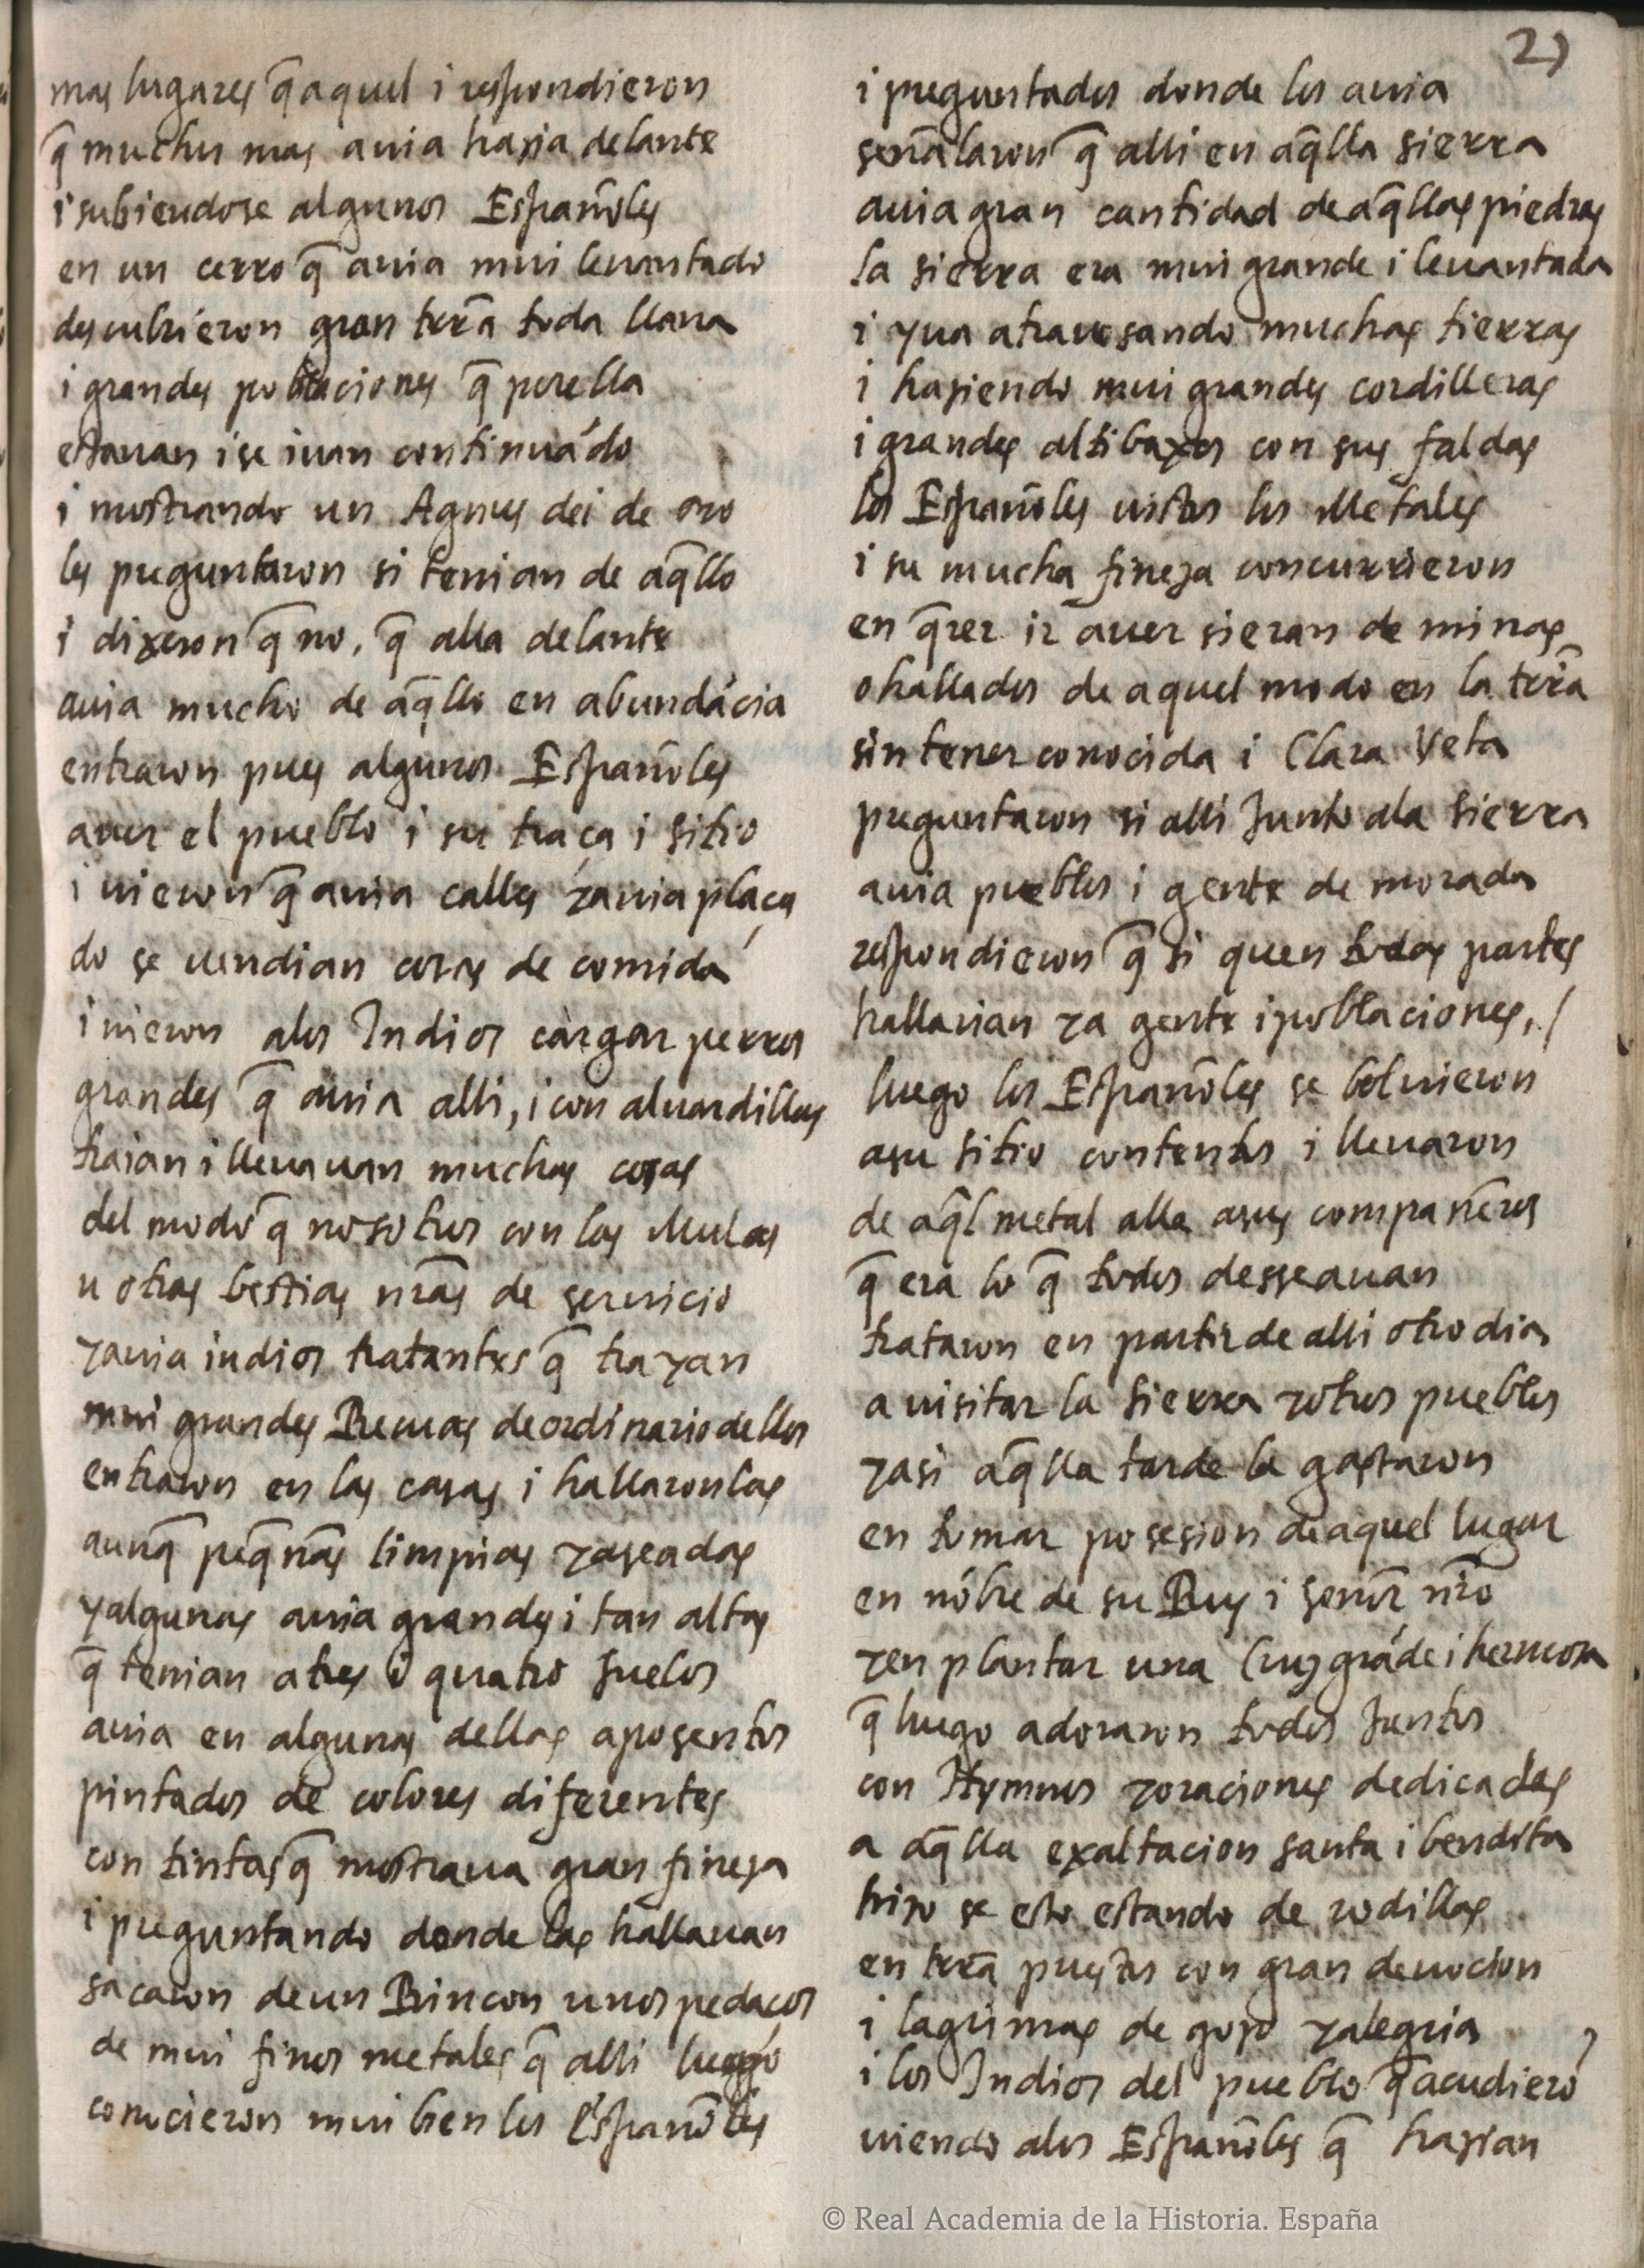 21
mas lugares q̃ aquel i respondieron
q̃ muchos mas auia hazia delante
i subiendose algunos Españoles
en un cerro q̃ auia mui leuantado
descubrieron gran terr̃a toda llana
i grandes poblaciones q̃ por ella
estauan i se iuan continuãdo
i mostrando un Agnus dei de oro
les preguntaron si tenian de aq̃llo
i dixeron q̃ no, q̃ alla delante
auia mucho de aq̃llo en abundãcia
entraron pues algunos Españoles
a uer el pueblo i su traça i sitio
i uieron q̃ auia calles y auia plaças
do se uendian cosas de comida
i uieron a los Indios cargar perros
grandes q̃ auia alli, i con aluardillas
traian i lleuauan muchas cosas
del modo q̃ nosotros con las Mulas
u otras bestias nr̃as de seruicio
y auia indios tratantes q̃ trayan
mui grandes Recuas de ordinario dellos
entraron en las casas i hallaronlas
aunq̃ peq̃ñas limpias y aseadas
y algunas auia grandes i tan altas
q̃ tenian a tres o quatro suelos
auia en algunas dellas aposentos
pintados de colores diferentes
con tintas q̃ mostraua gran fineza
i preguntando donde las hallauan
sacaron de un Rincon unos pedaços
de mui finos metales q̃ alli luego
conocieron mui bien los Españoles
i preguntados donde los auia
señalaron q̃ alli en aq̃lla sierra
auia gran cantidad de aq̃llas piedras
la sierra era mui grande i leuantada
i yua atrauesando muchas tierras
i haziendo mui grandes cordilleras
i grandes altibaxos con sus faldas
los Españoles uistos los Metales
i su mucha fineza concurrieron
en q̃rer ir a uer si eran de minas
o hallados de aquel modo en la terr̃a
sin tener conocida i Clara Veta
preguntaron si alli Junto a la sierra
auia pueblos i gente de morada
respondieron q̃ si qu en todas partes
hallarian ya gente i poblaciones, /
luego los Españoles se boluieron
a su sitio contentos i lleuaron
de aq̃l metal alla a sus compañeros
q̃ era lo q̃ todos desseauan
trataron en partir de alli otro dia
a uisitar la sierra y otros pueblos
y asi aq̃lla tarde la gastaron
en tomar posesion de aquel lugar
en nõbre de su Rey i señor nr̃o
y en plantar una Cruz grãde i hermosa
q̃ luego adoraron todos Juntos
con Hymnos y oraciones dedicadas
a aq̃lla exaltacion santa i bendita
hizo se esto estando de rodillas
en terr̃a puestos con gran deuocion
i lagrimas de gozo y alegria
i los Indios del pueblo q̃ acudierõ
uiendo a los Españoles q̃ hazian
© Real Academia de la Historia. España